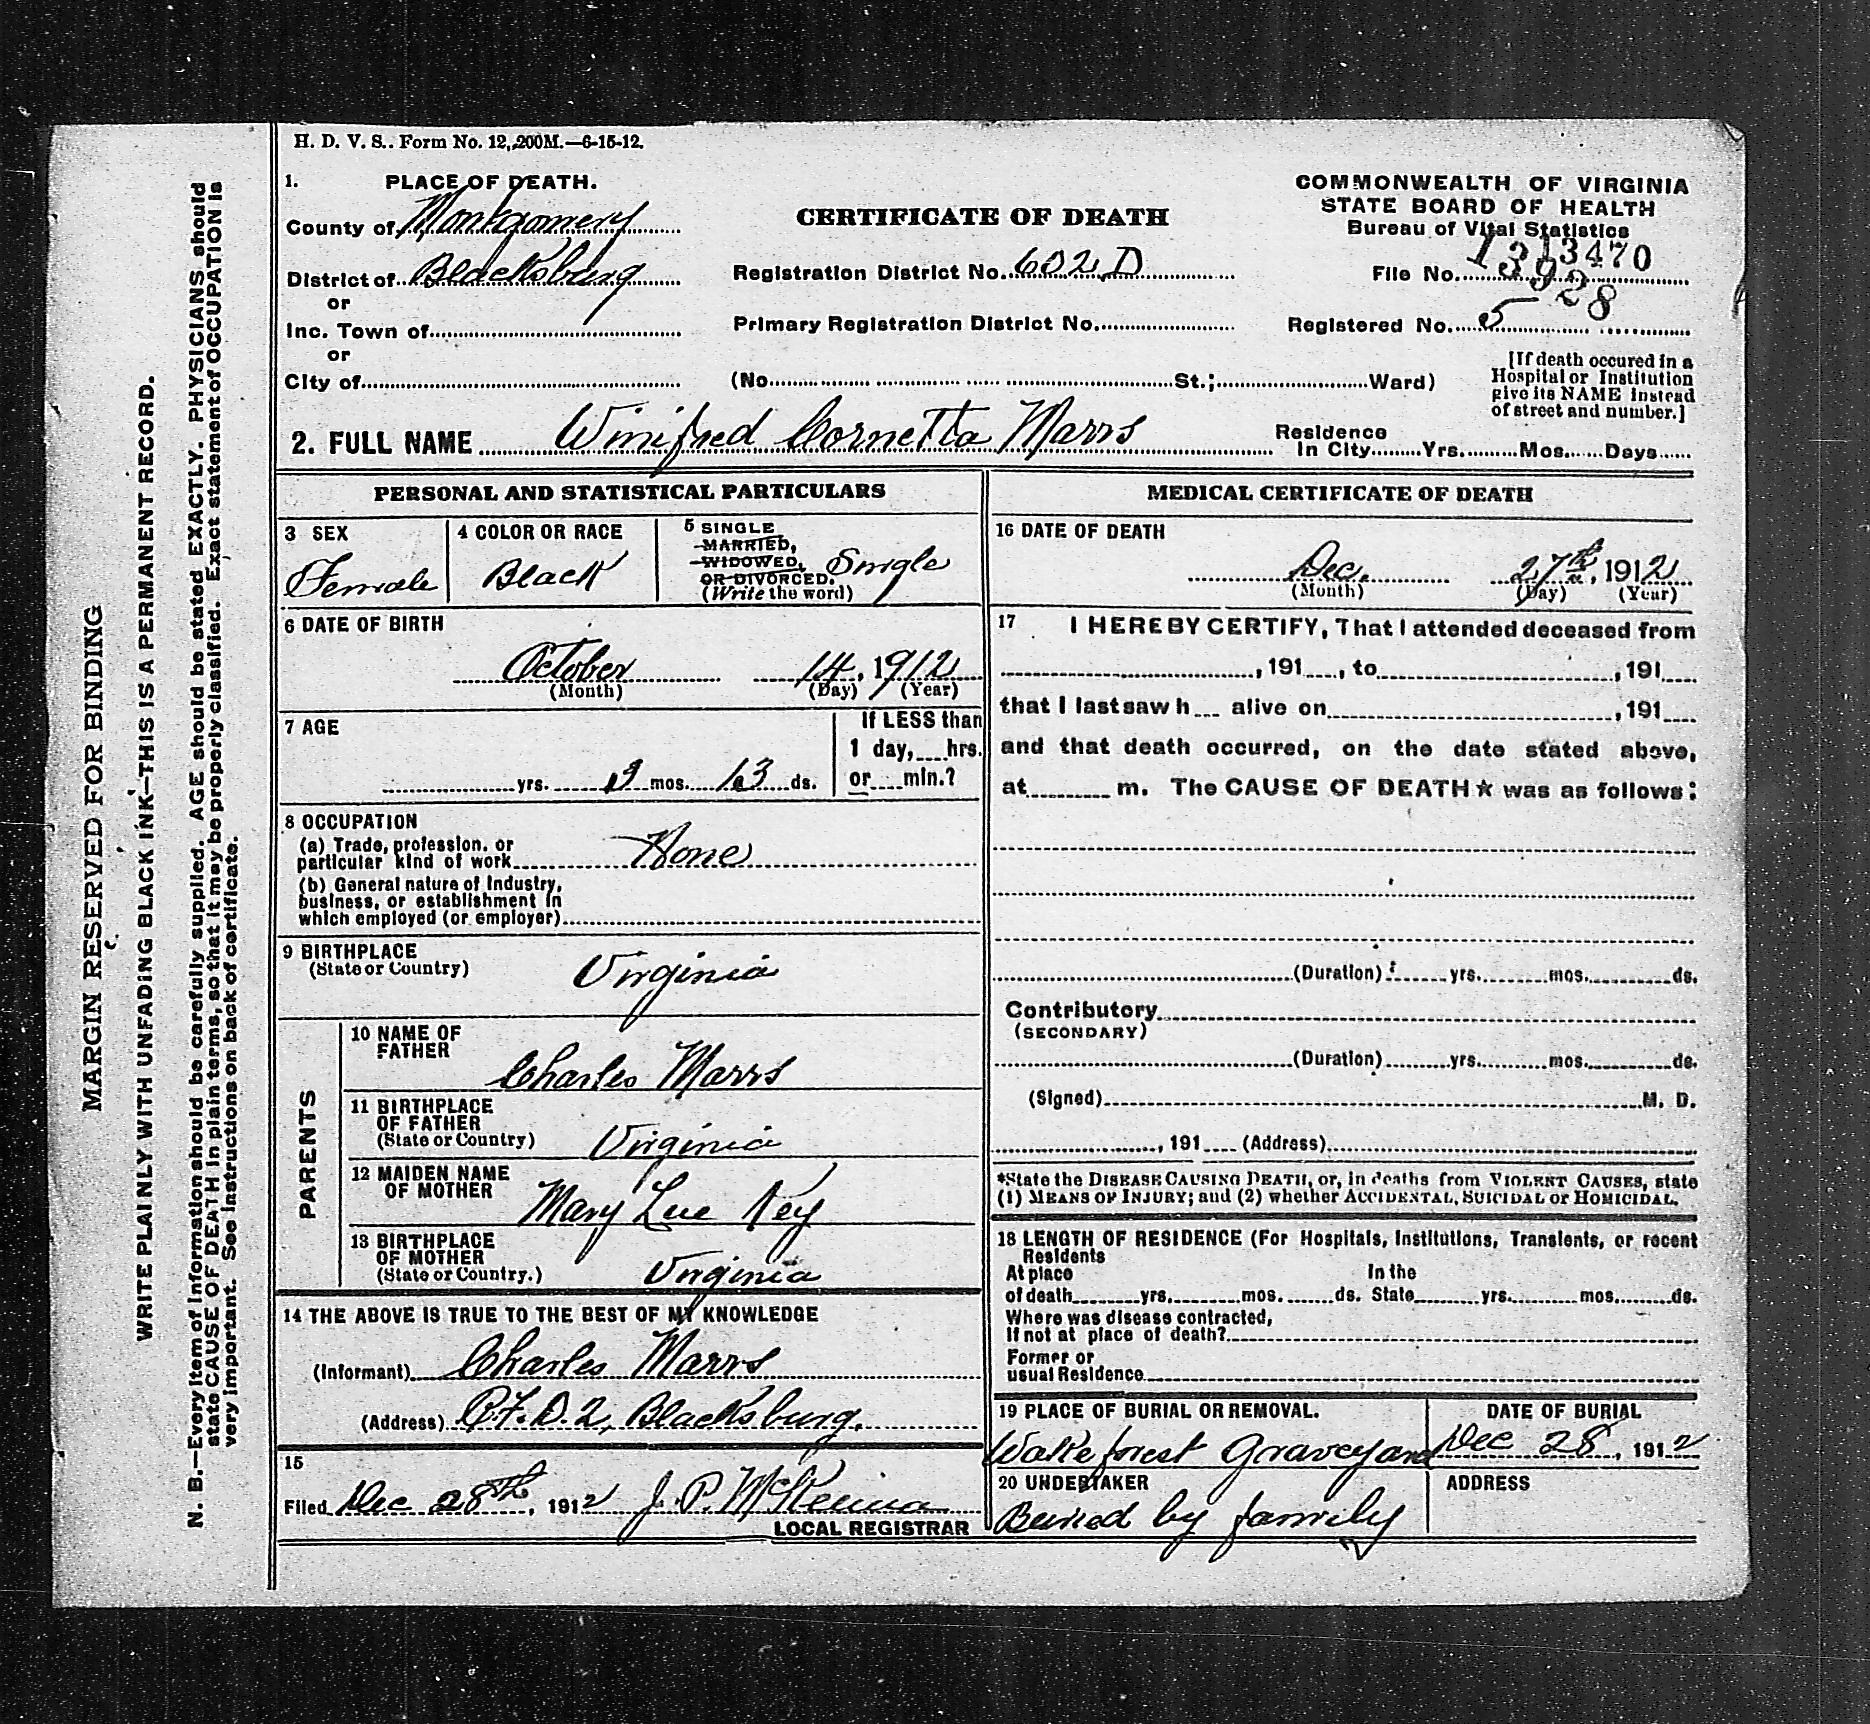 H. D. V. S.. Form No. 12, 200M.—6-15-12.
1. PLACE OF DEATH.
County of Montgomery
District of Blacksburg
or
Inc. Town of
or
City of
CERTIFICATE OF DEATH
Registration District No. 602 D
Primary Registration District No.
(No. St.; Ward)
COMMONWEALTH OF VIRGINIA
STATE BOARD OF HEALTH
Bureau of Vital Statistics
File No. 13470
13928
Registered No. 5
[If death occured in a
Hospital or Institution
give its NAME instead
of street and number.]
2. FULL NAME Winifred Cornetta Marrs
Residence
In City Yrs. Mos. Days
PERSONAL AND STATISTICAL PARTICULARS
3 SEX
Female
4 COLOR OR RACE
Black
5 SINGLE
MARRIED,
WIDOWED,
OR DIVORCED.
(Write the word)
Single
6 DATE OF BIRTH
October 14, 1912
(Month) (Day) (Year)
7 AGE
yrs. mos. 13 ds.
If LESS than
1 day, hrs.
or min.?
8 OCCUPATION
(a) Trade, profession, or
particular kind of work None
(b) General nature of Industry,
business, or establishment in
which employed (or employer)
9 BIRTHPLACE
(State or Country)
Virginia
PARENTS
10 NAME OF
FATHER
Charles Marrs
11 BIRTHPLACE
OF FATHER
(State or Country)
Virginia
12 MAIDEN NAME
OF MOTHER
Mary Lue Key
13 BIRTHPLACE
OF MOTHER
(State or Country.)
Virginia
14 THE ABOVE IS TRUE TO THE BEST OF MY KNOWLEDGE
(Informant) Charles Marrs
(Address) R.F.D. 2, Blacksburg.
15
Filed Dec 28th, 1912 J. P. McKenna
LOCAL REGISTRAR
MEDICAL CERTIFICATE OF DEATH
16 DATE OF DEATH
Dec. 27th, 1912
(Month) (Day) (Year)
17 I HEREBY CERTIFY, That I attended deceased from
, 191 , to , 191
that I last saw h alive on , 191
and that death occurred, on the date stated above,
at m. The CAUSE OF DEATH☆ was as follows:
(Duration) yrs. mos. ds.
Contributory
(SECONDARY)
(Duration) yrs. mos. ds.
(Signed) M. D.
, 191 (Address)
*State the DISEASE CAUSING DEATH, or, in deaths from VIOLENT CAUSES, state
(1) MEANS OF INJURY; and (2) whether ACCIDENTAL, SUICIDAL or HOMICIDAL.
18 LENGTH OF RESIDENCE (For Hospitals, Institutions, Transients, or recent
Residents
At place In the
of death yrs. mos. ds. State yrs. mos. ds.
Where was disease contracted,
If not at place of death?
Former or
usual Residence
19 PLACE OF BURIAL OR REMOVAL.
Wake forest Graveyard
DATE OF BURIAL
Dec 28, 1912
20 UNDERTAKER
Buried by family
ADDRESS
MARGIN RESERVED FOR BINDING
WRITE PLAINLY WITH UNFADING BLACK INK—THIS IS A PERMANENT RECORD.
N. B.—Every item of information should be carefully supplied. AGE should be stated EXACTLY. PHYSICIANS should
state CAUSE OF DEATH in plain terms, so that it may be properly classified. Exact statement of OCCUPATION is
very important. See instructions on back of certificate.